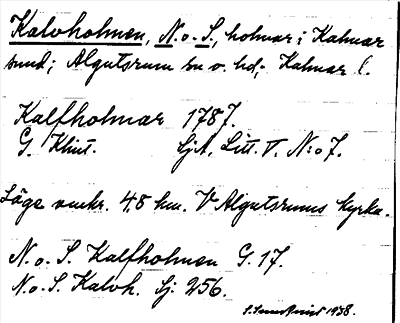 Kalvholmen, N. o. S., holmar i Kalmar
sund; Algutsrum sn o. hd; Kalmar l.
Kalfholmar 1787.
G. Klint. SjA, Litt. V. N:o 7.
Läge omkr. 4,8 km. V Algutsrums kyrka.
N. o. S. Kalfholmen G. 17.
N. o. S. Kalvh. Sj. 256.
1938.